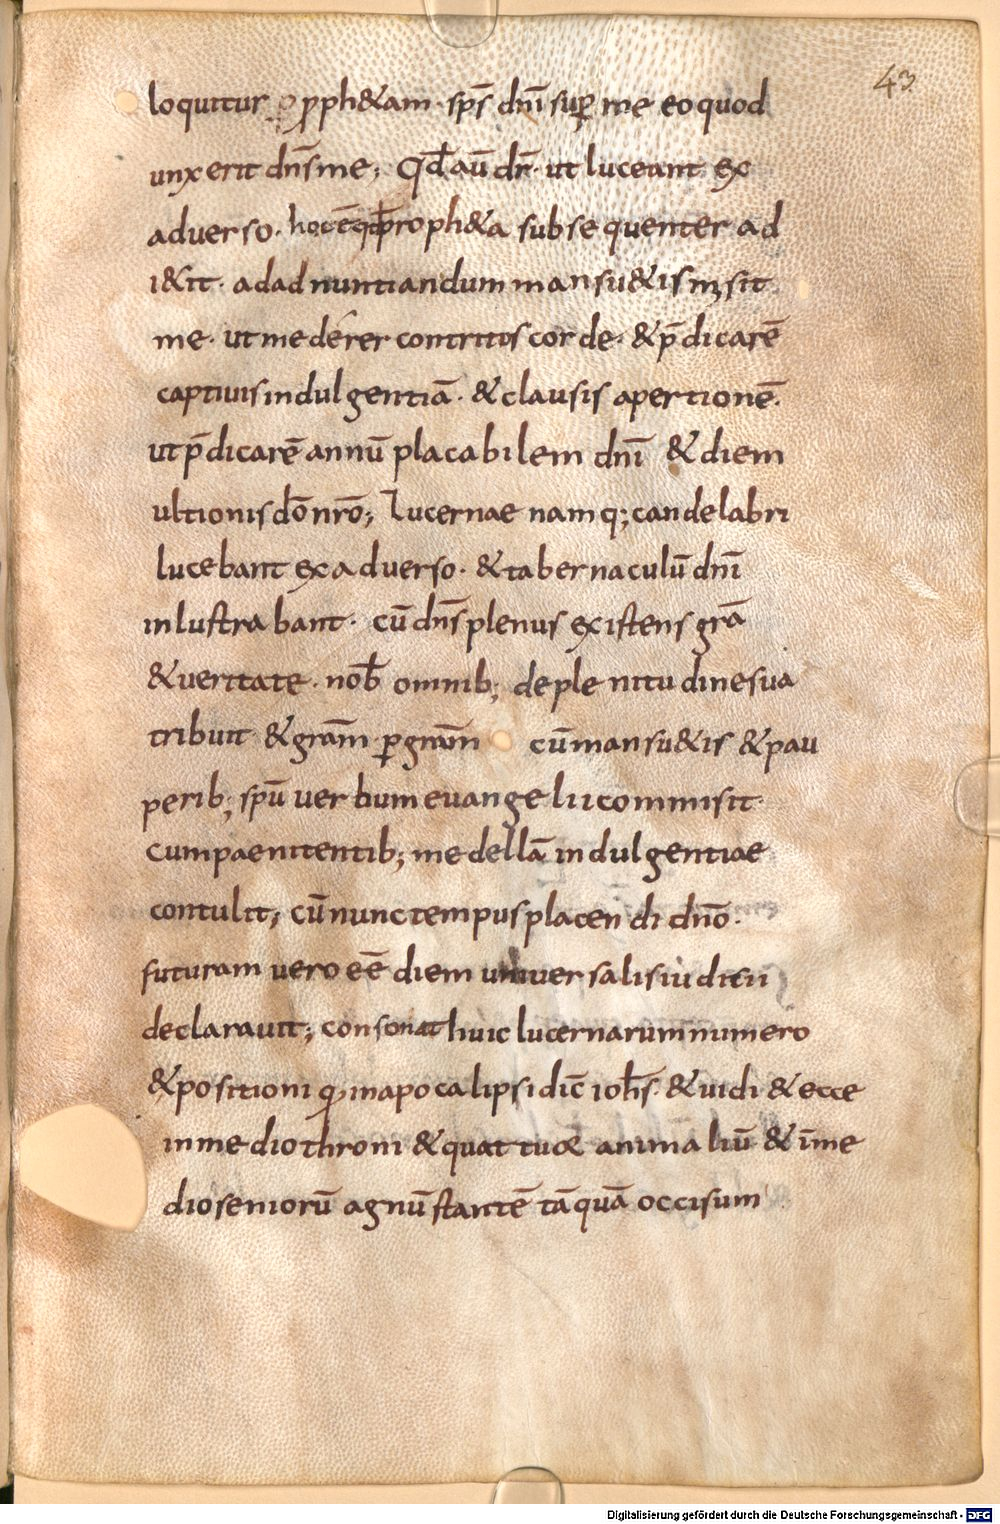 43
loquitur ꝑ ꝓph&am · sp̄s dn̄i suꝑ me eo quod
unxerit dn̄s me; Qd̄ aū dr̄ · ut luceant ex
aduerso · hoc ē qd̄ proph&a subsequenter ad
i&it · ad adnuntiandum mansu&is misit
me · ut mederer contritis corde · & p̄dicarē
captiuis indulgentiā · & clausis apertionē ·
ut p̄dicarē annū placabilem dn̄i & diem
ultionis dō nr̄o; Lucernae namq; candelabri
lucebant ex aduerso · & tabernaculū dn̄i
inlustrabant · cū dn̄s plenus existens grā
& ueritate · nob̄ omnib; de plenitudine sua
tribuit & grām ꝑ grām cū mansu&is & pau
perib; spū uerbum euangelii commisit ·
cum paenitentib; medellā indulgentiae
contulit; cū nunc tempus placendi dn̄o ·
futuram uero eē diem uniuersalis iudicii
declarauit; consonat huic lucernarum numero
& positioni qꝫ in apocalipsi dic̄ ioh̄s · & uidi & ecce
in medio throni & quattuor animaliū & in me
dio seniorū agnū stantē tāquā occisum
Digitalisierung gefördert durch die Deutsche Forschungsgemeinschaft - DFG